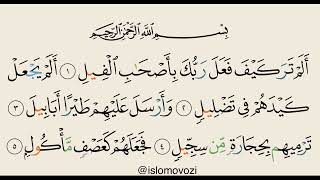 بِسْمِ اللَّهِ الرَّحْمَٰنِ الرَّحِيمِ
أَلَمْ تَرَ كَيْفَ فَعَلَ رَبُّكَ بِأَصْحَابِ الْفِيلِ ١ أَلَمْ يَجْعَلْ
كَيْدَهُمْ فِي تَضْلِيلٍ ٢ وَأَرْسَلَ عَلَيْهِمْ طَيْرًا أَبَابِيلَ ٣
تَرْمِيهِم بِحِجَارَةٍ مِّن سِجِّيلٍ ٤ فَجَعَلَهُمْ كَعَصْفٍ مَّأْكُولٍ ٥
@islomovozi